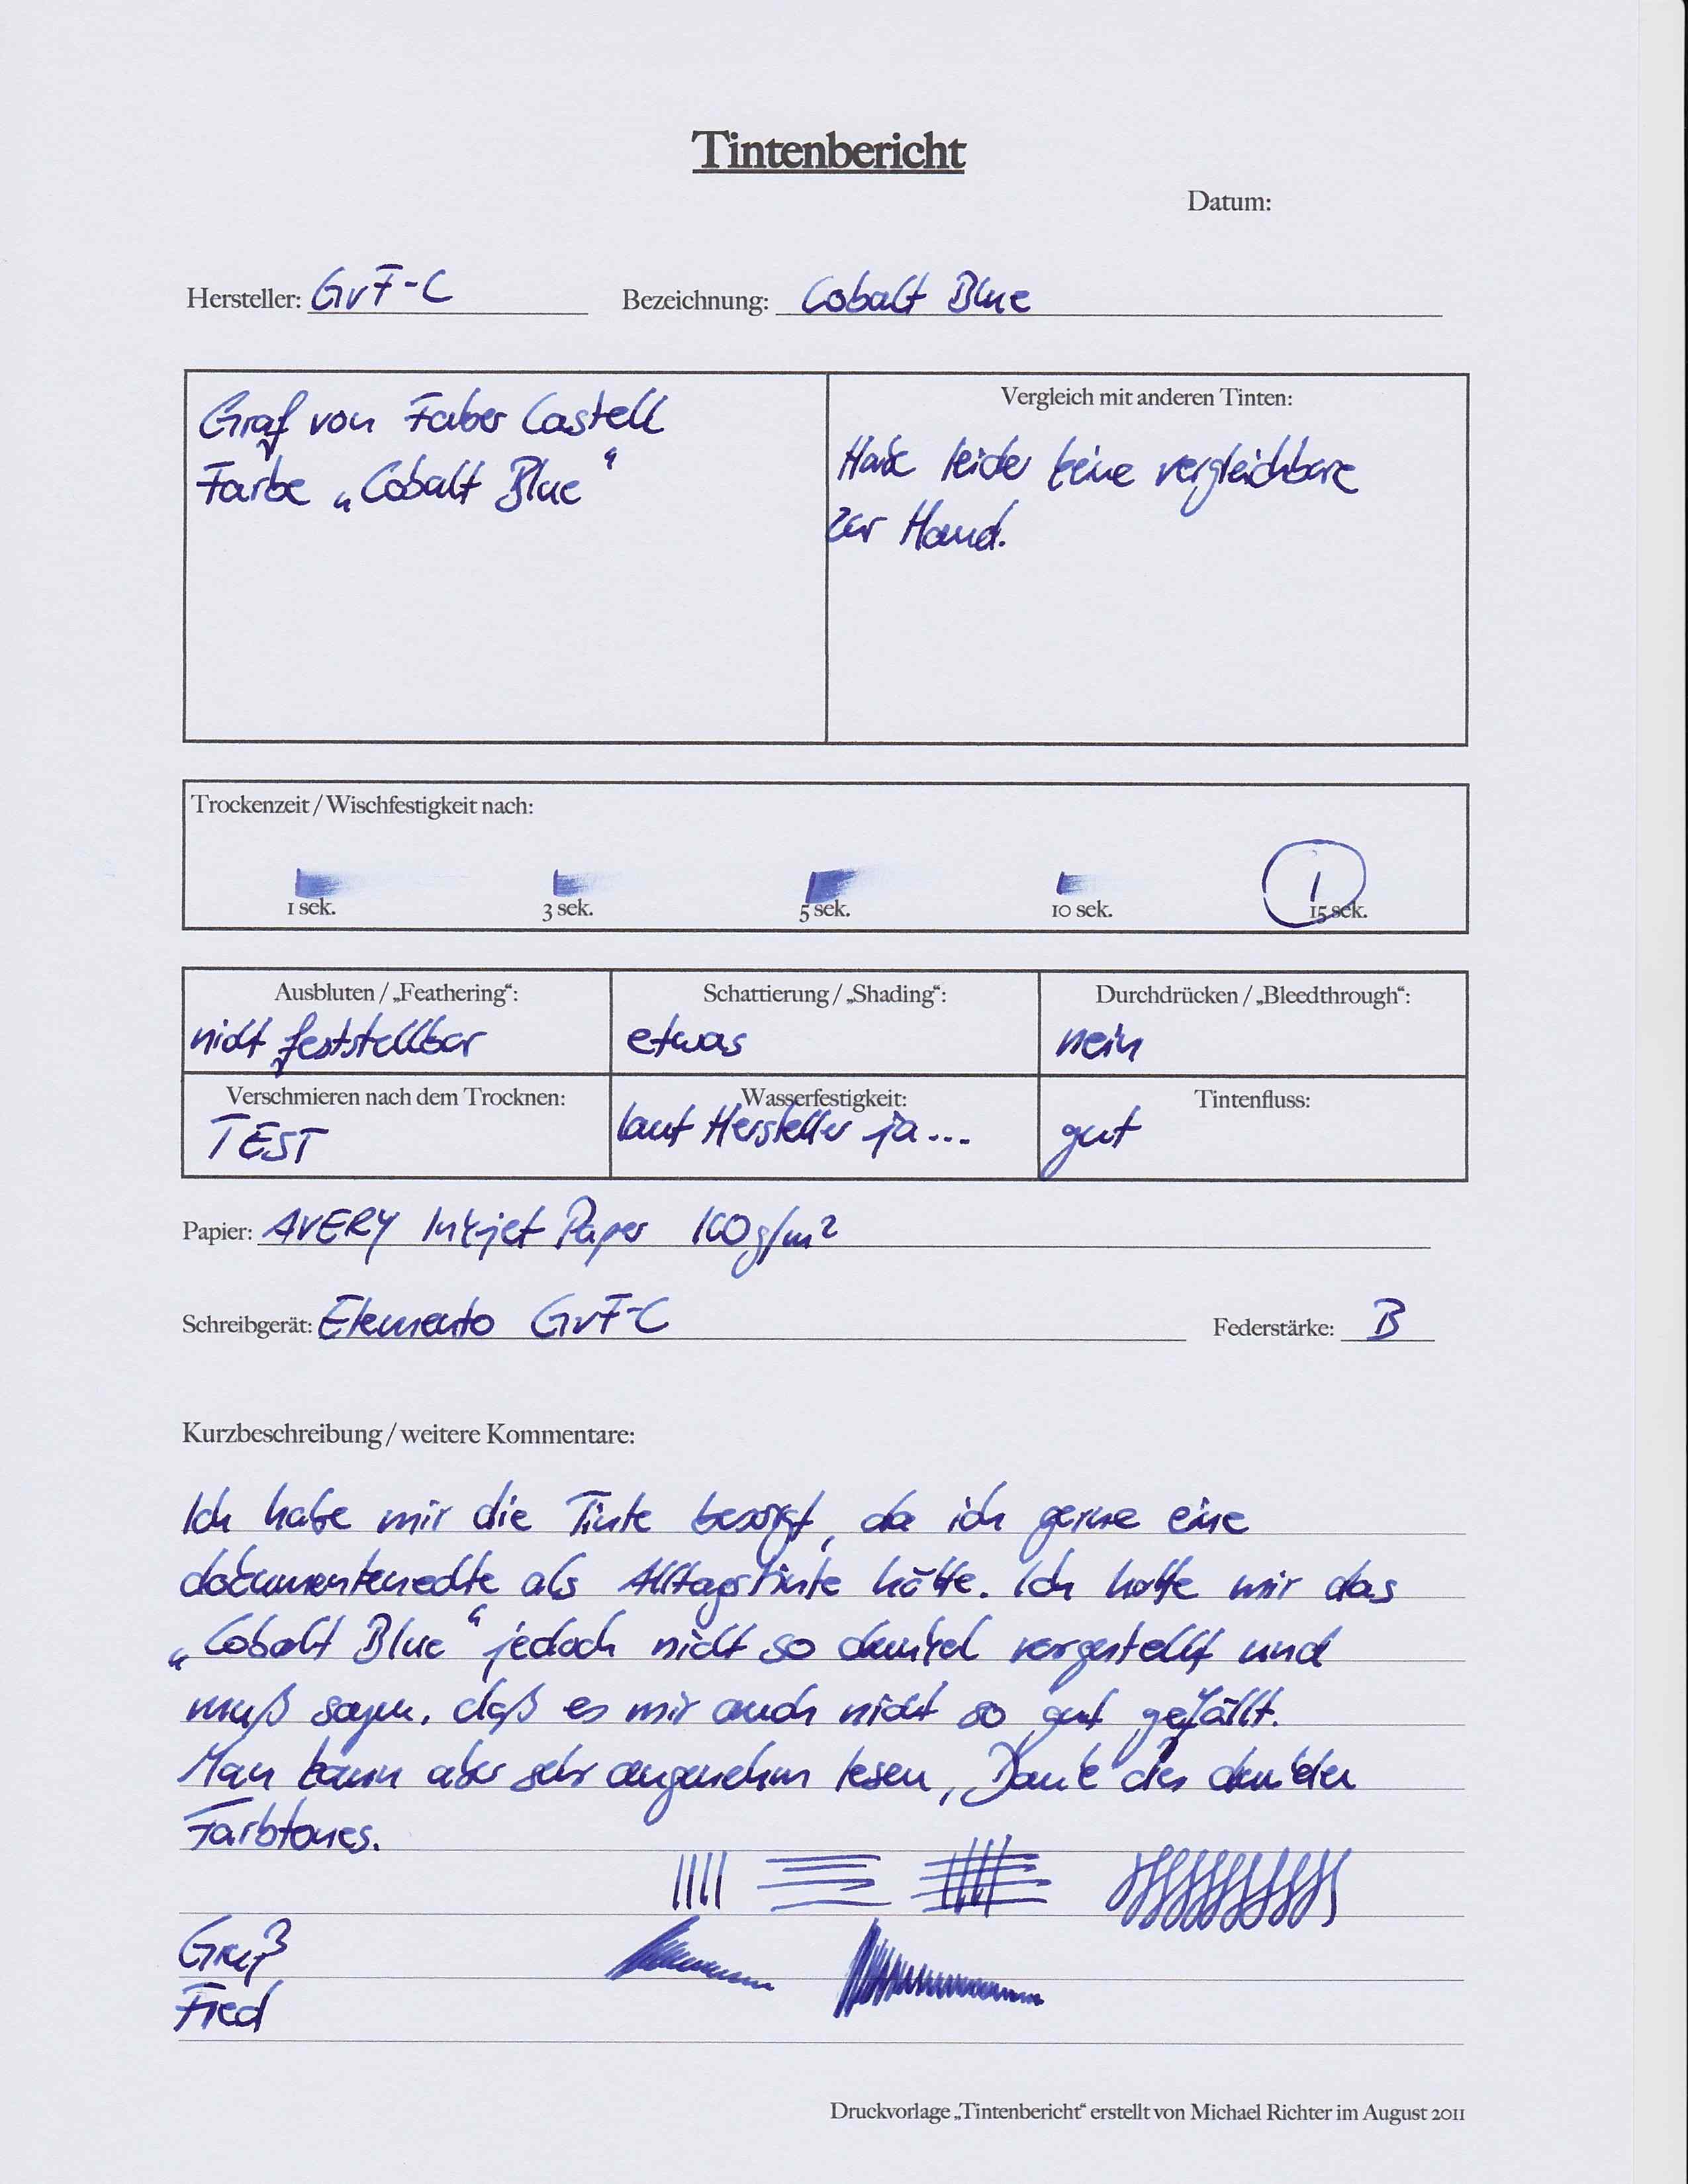 Tintenbericht
Datum:
Hersteller: GvF-C Bezeichnung: Cobalt Blue
Graf von Faber Castell
Farbe „Cobalt Blue“
Vergleich mit anderen Tinten:
Habe leider keine vergleichbare
zur Hand.
Trockenzeit / Wischfestigkeit nach:
1 sek. 3 sek. 5 sek. 10 sek. 15 sek.
Ausbluten / „Feathering“: Schattierung / „Shading“: Durchdrücken / „Bleedthrough“:
nicht feststellbar etwas nein
Verschmieren nach dem Trocknen: Wasserfestigkeit: Tintenfluss:
TEST laut Hersteller ja... gut
Papier: AVERY Inkjet Paper 100g/m²
Schreibgerät: Elemento GvF-C Federstärke: B
Kurzbeschreibung / weitere Kommentare:
Ich habe mir die Tinte besorgt, da ich gerne eine
dokumentenechte als Alltagstinte hätte. Ich hatte mir das
„Cobalt Blue“ jedoch nicht so dunkel vorgestellt und
muß sagen, daß es mir auch nicht so gut gefällt.
Man kann aber sehr angenehm lesen, Dank des dunklen
Farbtones.
Gruß
Fred
Druckvorlage „Tintenbericht“ erstellt von Michael Richter im August 2011